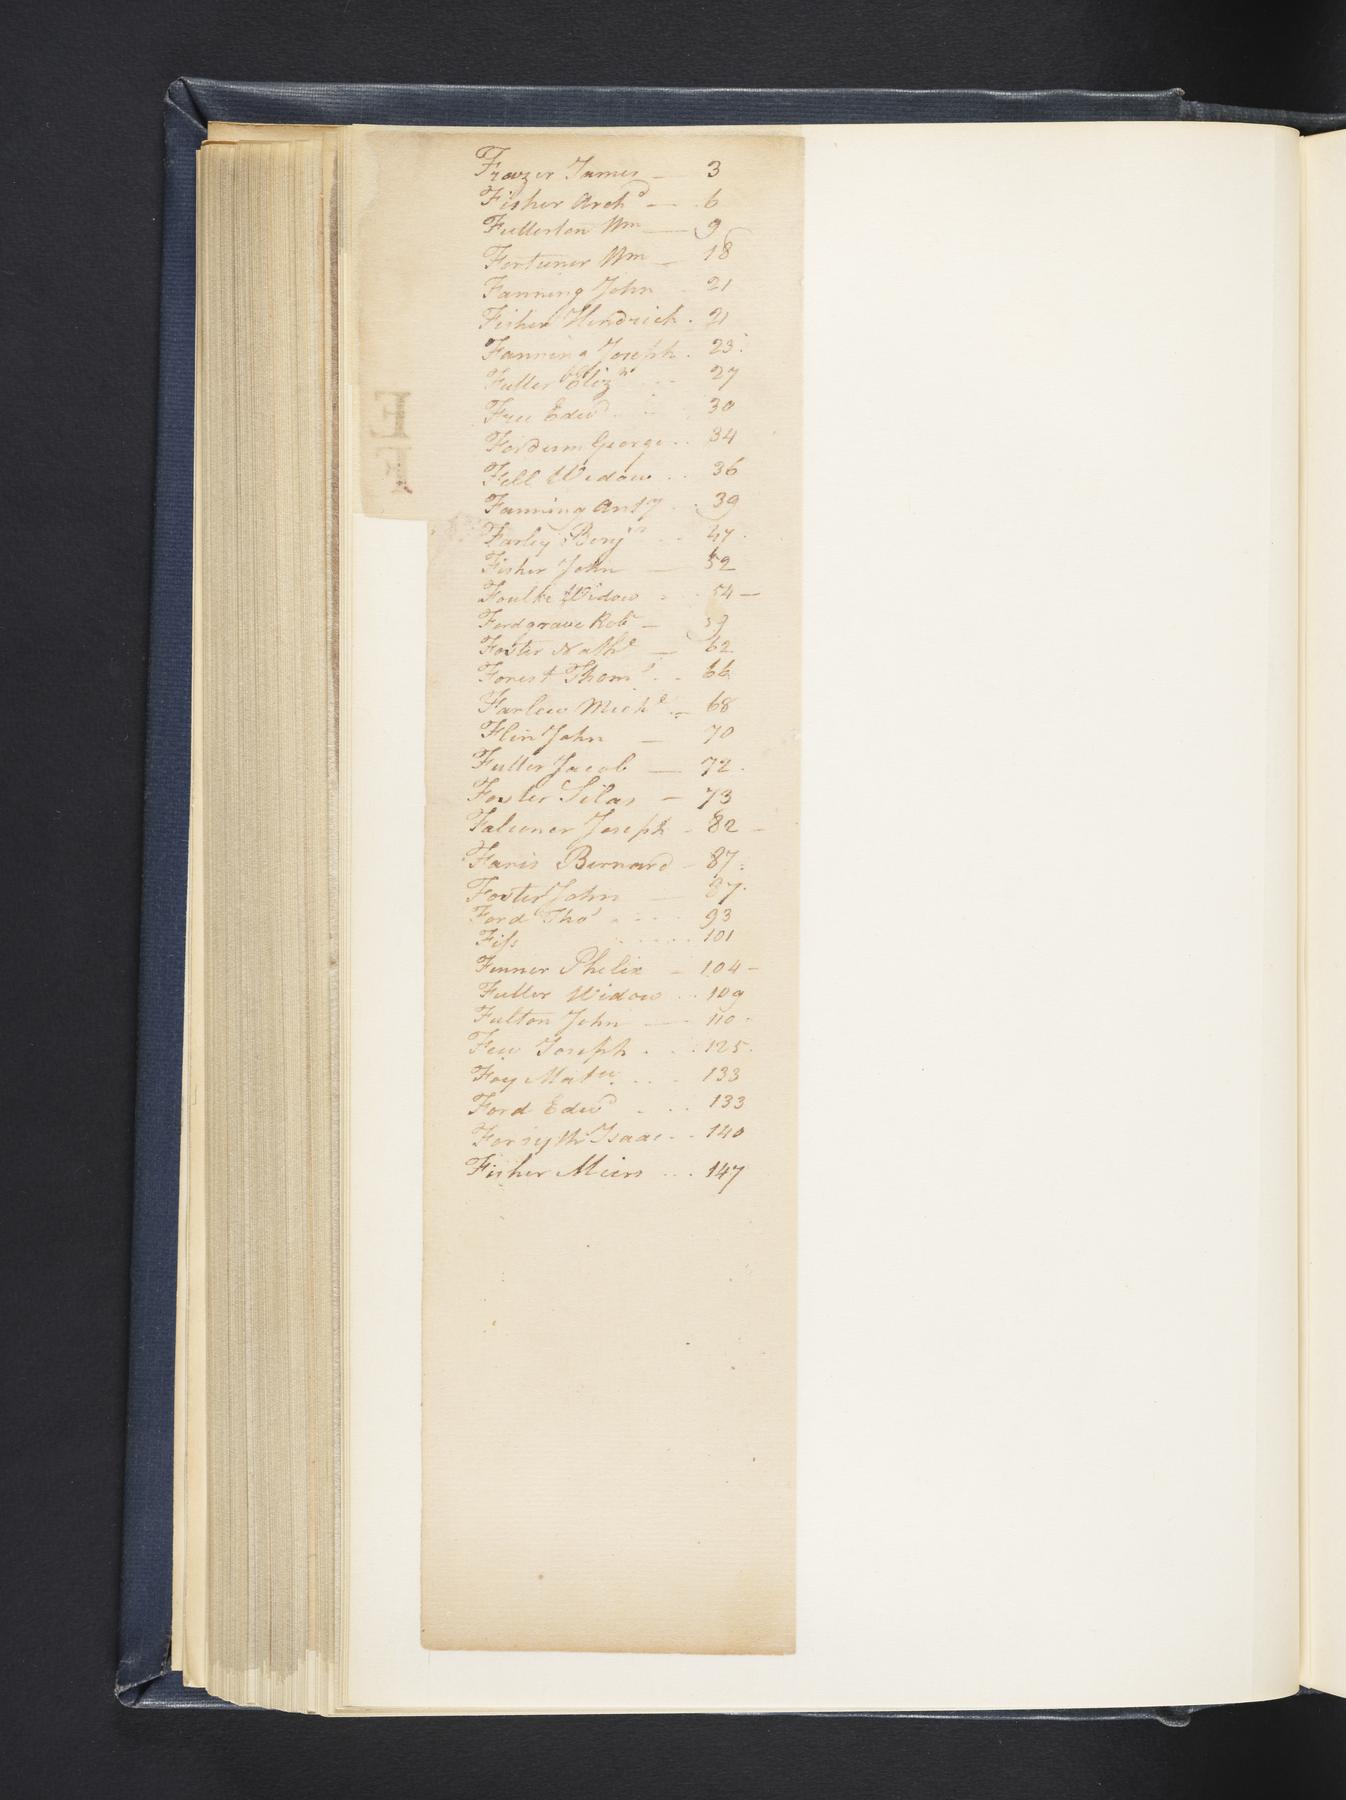 Frazer James — 3
Fisher Archd — 6
Fullerton Wm — 9
Fortuner Wm — 18
Fanning John 21
Fisher Hendrick . 21
Fanning Joseph . 23
Fuller Elizh 27
Free Edwd 30
Fordum George . . 34
Fell Widow . . 36
Fanning Anty . . 39
Farley Benjn . . 47
Fisher John — 52
Foulke Widow . 54 —
Fordgrave Robt — 59
Foster Nathl — 62
Forest Thoms . . 66
Farlow Michl . . 68
Flin John — 70
Fuller Jacob — 72
Foster Silas — 73
Falconer Joseph - 82 -
Faris Bernard - 87
Foster John — 87
Ford Thos . . . . 93
Fiss . . . . . 101
Fenner Phelix — 104 -
Fuller Widow . . 109
Fulton John — 110
Few Joseph . . . 125
Foy Matw . . . 133
Ford Edwd . . . 133
Forsyth Isaac . . 140
Fisher Miers . . . 147